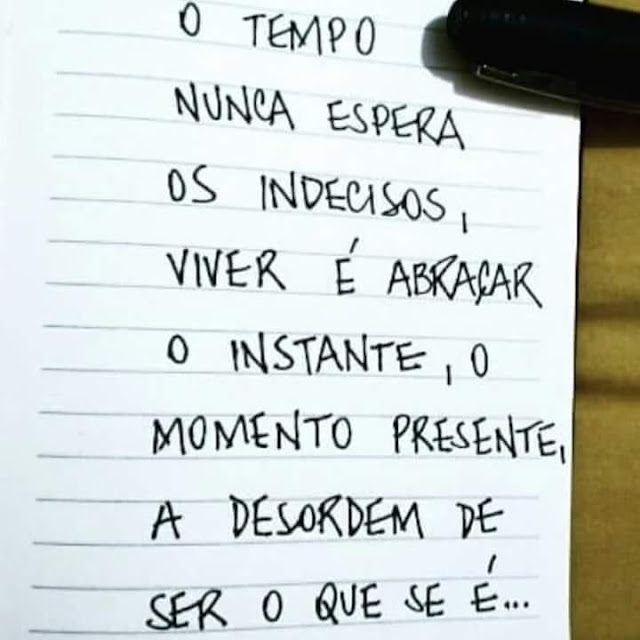 O TEMPO
NUNCA ESPERA
OS INDECISOS,
VIVER É ABRAÇAR
O INSTANTE, O
MOMENTO PRESENTE,
A DESORDEM DE
SER O QUE SE É...